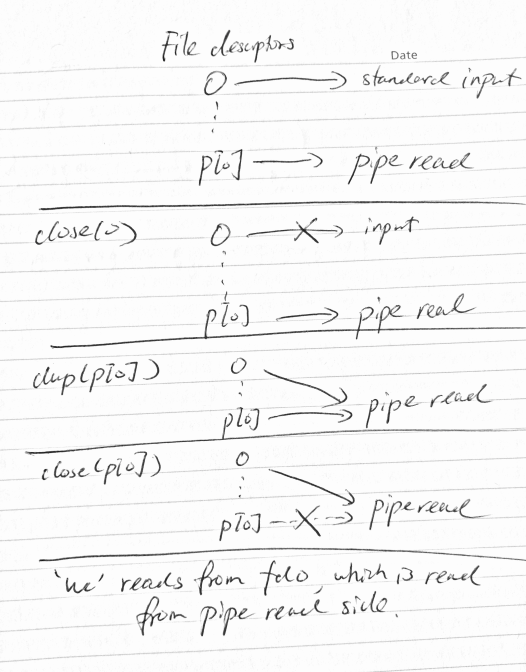 File descriptors
Date
0 → standard input
p[0] → pipe read
close(0) 0 → input
p[0] → pipe read
dup(p[0]) 0
p[0] → pipe read
close(p[0]) 0
p[0] → pipe read
'wc' reads from fd0, which is read
from pipe read side.